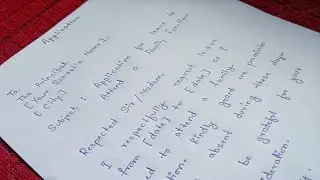 Application
To,
The Principal
[Your School's Name],
[City]
Subject : Application for leave to
Attend a Family Function
Respected Sir/Madam,
I respectfully request leave
from [date] to [date] as I
to attend a family
Kindly grant me permission
absent during these days
be grateful for your